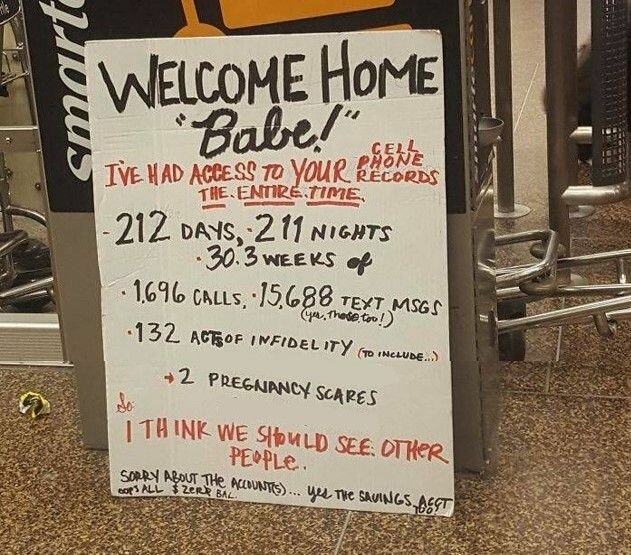 smart
WELCOME HOME
"Babe!"
I'VE HAD ACCESS TO YOUR CELL PHONE RECORDS
THE ENTIRE TIME.
- 212 DAYS, · 211 NIGHTS
· 30.3 WEEKS of
· 1,696 CALLS, · 15,688 TEXT MSGS
(yes, those, too!)
· 132 ACTS OF INFIDELITY (TO INCLUDE...)
→ 2 PREGNANCY SCARES
So
I THINK WE SHOULD SEE OTHER
PEOPLE.
SORRY ABOUT THE ACCOUNT(S)... yes THE SAVINGS ACCT
OOPS ALL $ ZERO BAL. TOO!